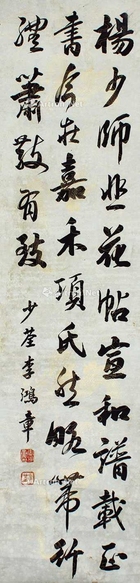 楊少師韭花帖宣和譜載正
書今在嘉禾項氏然略帶行
體蕭散有致
少荃李鴻章